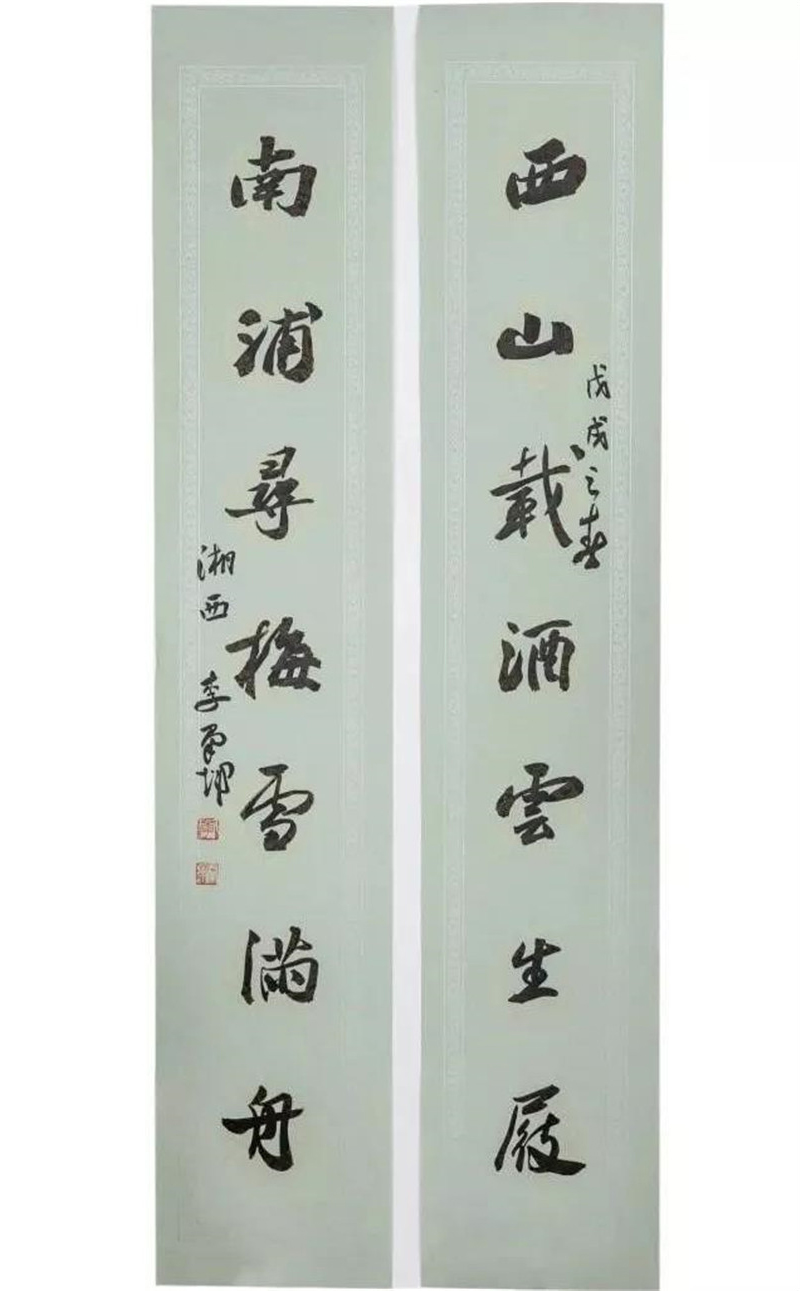 西山載酒雲生屐
戊戌之春
南浦尋梅雪滿舟
湘西 李